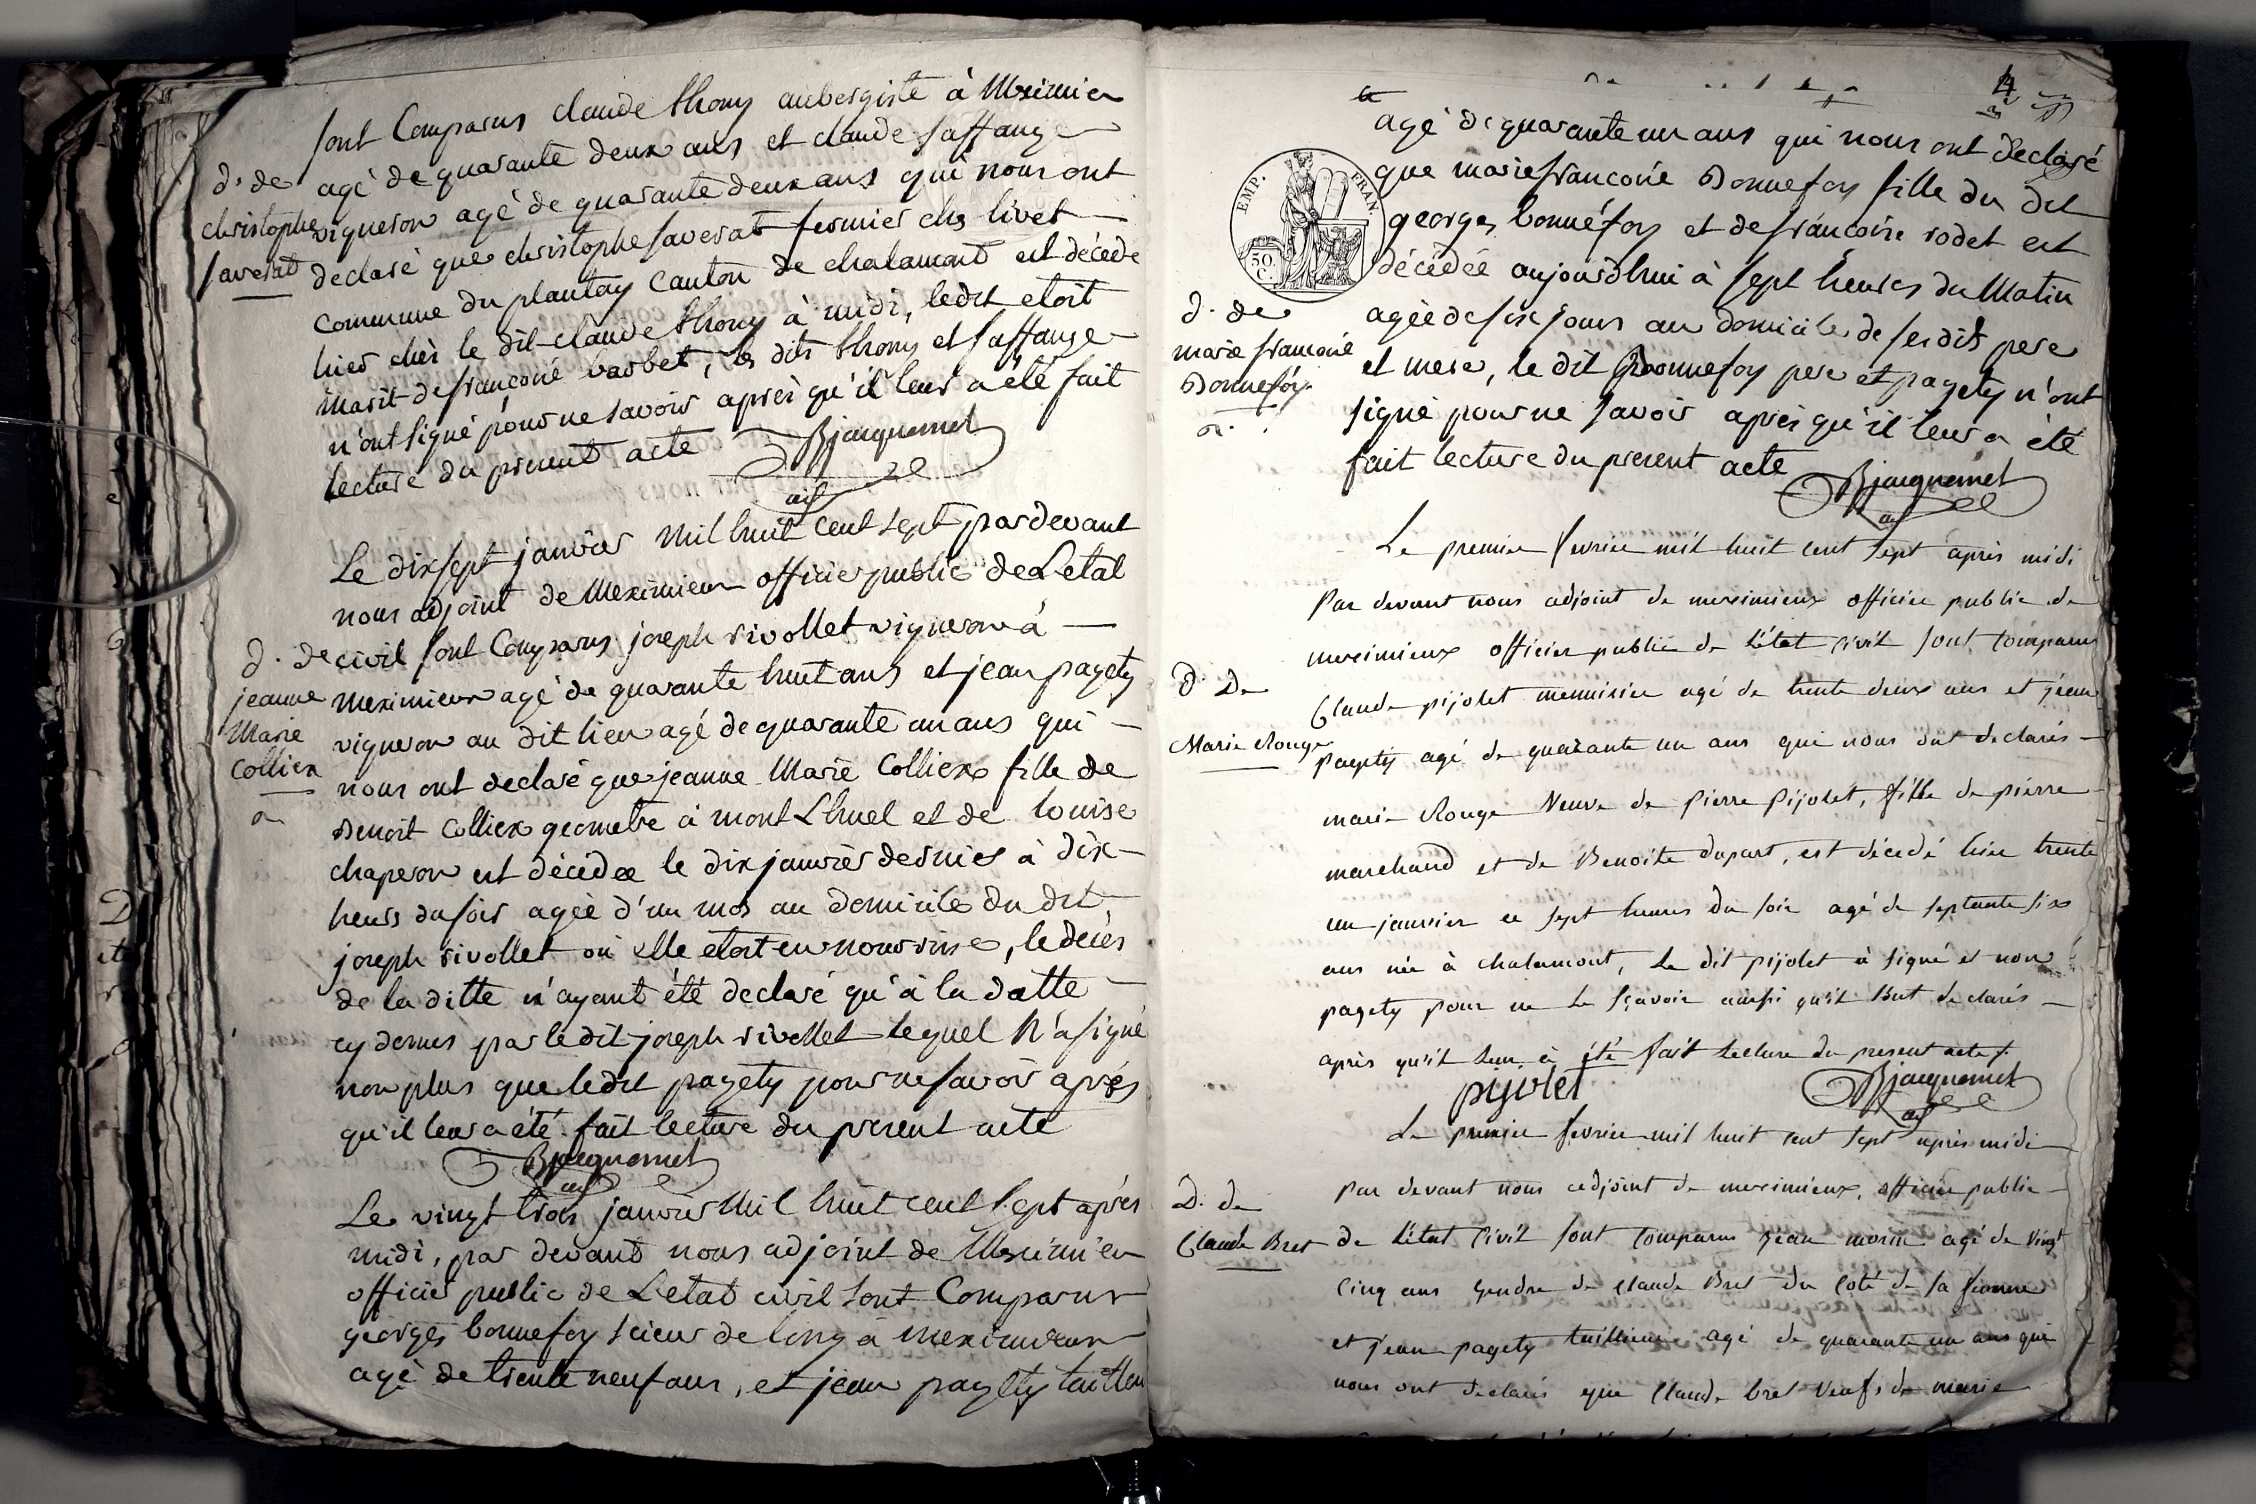 sont Comparus claude thomy aubergiste à Meximieu
d. de
christophe
saverat
agé de quarante deux ans et claude saffange
vigneron agé de quarante deux ans qui nous ont
declaré que christophe saverat fermier ches livet
commune du plantay canton de chalamont est décédé
hier chés le dit claude thomy à midi, ledit etoit
marit de françoise barbet, les dits thomy et saffange
n'ont signé pour ne savoir après qu'il leur a été fait
lecture du present acte
Bjacquemet
adj
Le dix sept janvier mil huit cent sept pardevant
nous adjoint de Meximieux officier public de Letat
d. de
jeanne
Marie
Colliex
civil sont Comparus joseph rivollet vigneron à
Meximieux agé de quarante huit ans et jean pagety
vigneron au dit lieu agé de quarante un ans qui
nous ont declaré que jeanne Marie Colliex fille de
Benoit Colliex geometre à mont Lhuel et de louise
chaperon est décédee le dix janvier dernier à dix
heurs du soir agée d'un mos au domicile du dit
joseph rivollet où elle etoit en nourrise, le décès
de la ditte n'ayant été declaré qu'à la datte
cy dernes par le dit joseph rivollet lequel n'a signé
non plus que ledit pagety pour ne savoir après
qu'il leur a été fait lecture du present acte
Bjacquemet
adj
Le vingt trois janvier Mil huit cent sept après
midi, par devant nous adjoint de Meximieu
officier public de Letat civil sont Comparus
georges bonnefoy scieur de long à meximieux
agé de trente neuf ans, et jean pagety tailleu
4
agé de quarante un ans qui nous ont declaré
EMP. FRAN.
50 C.
que marie françoise Bonnefoy fille du dit
georges bonnéfoy et de françoise rodet est
décédée aujourdhui à sept heures du Matin
d. de
marie françoise
Bonnefoy.
agée de six jours au domicile de ses dits pere
et mere, le dit Bonnefoy pere et pagety n'ont
signé pour ne savoir après qu'il leur a été
fait lecture du present acte
Bjacquemet
adj
Le premier fevrier mil huit cent sept après midi
Par devant nous adjoint de meximieux officier public de
meximieux officier public de l'état civil sont comparus
d. De
Marie Rouge
Claude pijolet menuisier agé de trente deux ans et jean
pagety agé de quarante un ans qui nous ont declarés
marie Rouge Veuve de pierre Pijolet, fille de pierre
marchand et de Benoite dupart, est décedé hier trente
un janvier à sept heures du soir agé de septante six
ans née à chalamont, Le dit pijolet à signé et non
pagety pour ne le sçavoir ainsi qu'il l'ont declarés
après qu'il leur à été fait Lecture du present acte
pijolet
Bjacquemet
adj
Le premier fevrier mil huit cent sept après midi
D. de
Claude Bret
Par devant nous adjoint de meximieux, officier public
de l'état Civil sont comparus jean morin agé de vingt
cinq ans gendre de Claude Bret du coté de sa femme
et jean pagety taillieur agé de quarante un ans qui
nous ont declarés que Claude bret veuf de marie